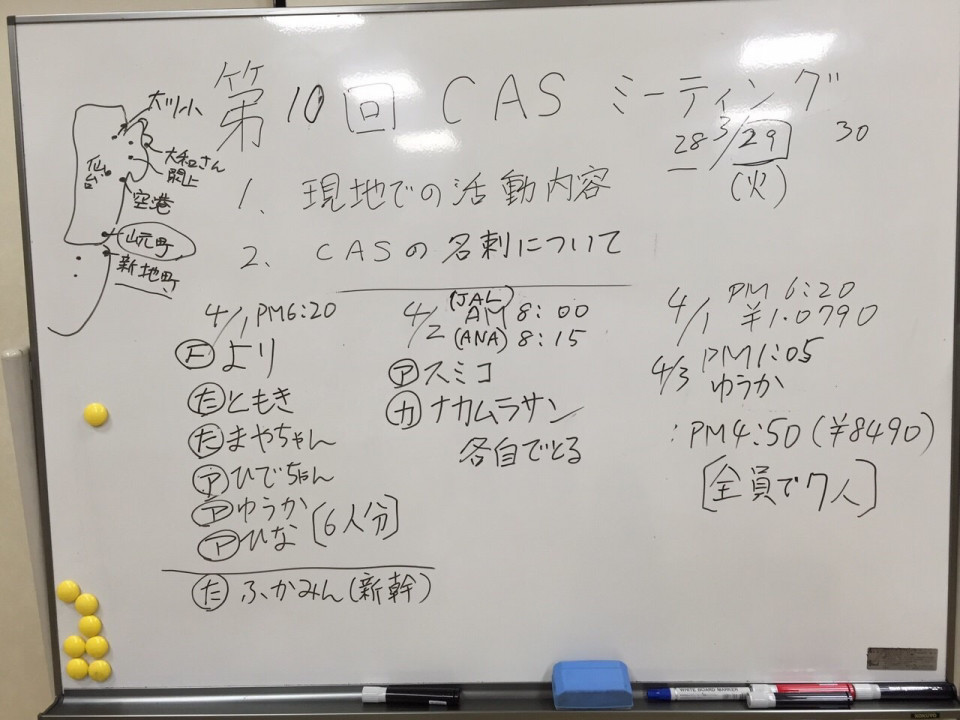 第10回 CAS ミーティング
28 3/29 30
(火)
大川小
仙台
大和さん
閖上
空港
山元町
新地町
1、現地での活動内容
2、CASの名刺について
4/1 PM6:20
より
た ともき
た まやちゃん
ア ひでちゃん
ア ゆうか
ア ひな [6人分]
た ふかみん(新幹)
4/2 (JAL) AM 8:00
(ANA) 8:15
ア スミコ
カ ナカムラサン
各自でとる
4/1 PM 6:20
¥1.0790
4/3 PM1:05
ゆうか
:PM4:50(¥8490)
[全員で7人]
WHITE BOARD MARKER